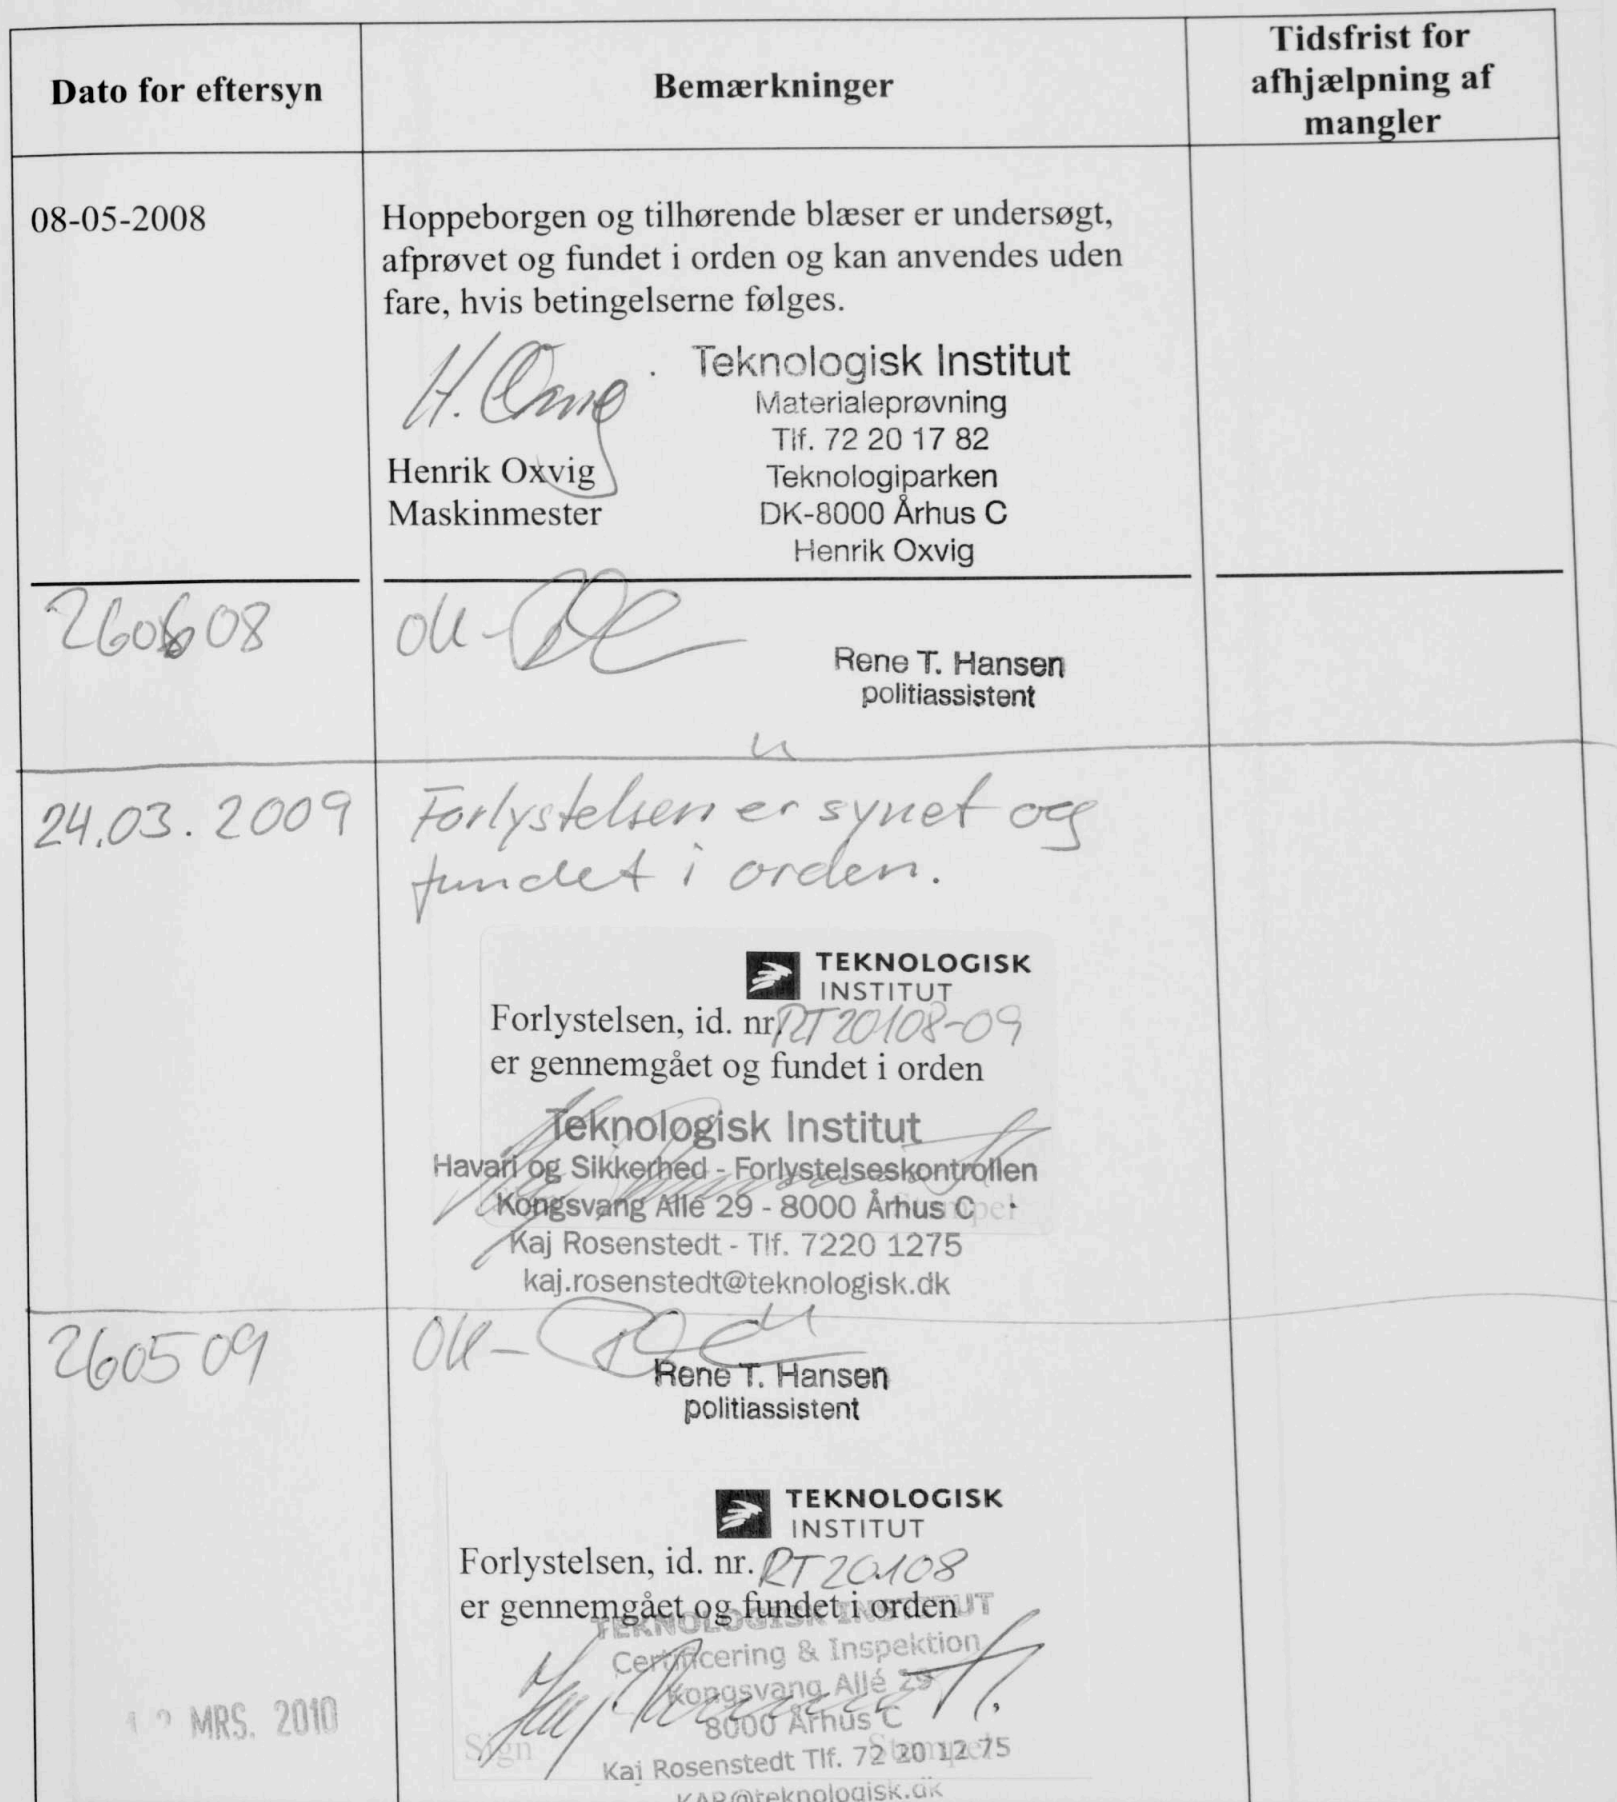 Dato for eftersyn
Bemærkninger
Tidsfrist for
afhjælpning af
mangler
08-05-2008
Hoppeborgen og tilhørende blæser er undersøgt,
afprøvet og fundet i orden og kan anvendes uden
fare, hvis betingelserne følges.
Teknologisk Institut
Materialeprøvning
Tlf. 72 20 17 82
Teknologiparken
DK-8000 Århus C
Henrik Oxvig
Henrik Oxvig
Maskinmester
260608
OK-
Rene T. Hansen
politiassistent
24.03.2009
Forlystelsen er synet og
fundet i orden.
TEKNOLOGISK
INSTITUT
Forlystelsen, id. nr. RT20108-09
er gennemgået og fundet i orden
Teknologisk Institut
Havari og Sikkerhed - Forlystelseskontrollen
Kongsvang Allé 29 - 8000 Århus C
Kaj Rosenstedt - Tlf. 7220 1275
kaj.rosenstedt@teknologisk.dk
260509
OK-
Rene T. Hansen
politiassistent
TEKNOLOGISK
INSTITUT
Forlystelsen, id. nr. RT20108
er gennemgået og fundet i orden
TEKNOLOGISK INSTITUT
Certificering & Inspektion
Kongsvang Allé 29
8000 Århus C
MRS. 2010
Sign
Stempel
Kaj Rosenstedt Tlf. 72 20 12 75
KAR@teknologisk.dk